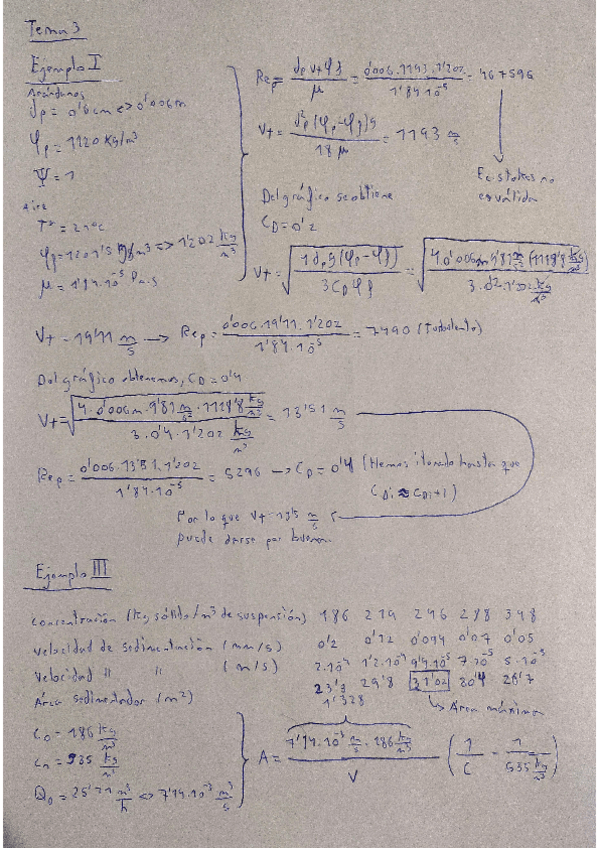 Tema 3
Ejemplo I
Arándanos
dp = 0'6cm <=> 0'006m
φp = 1120 Kg/m³
Ψ = 1
Aire
Tª = 21ºC
φf = 1201'5 g/m³ => 1'202 kg/m³
μ = 1'84·10⁻⁵ Pa·s
Rep = dp vt φf / μ = 0'006·1193·1'202 / 1'84·10⁻⁵ = 467596
Vt = d²p(φp-φf)g / 18μ = 1193 m/s
Ec stokes no es válida
Del gráfico se obtiene
CD = 0'2
Vt = √(4dpg(φp-φf) / 3CDφf) = √(4·0'006m·9'81 m/s² (1118'8 kg/m³) / 3·0'2·1'202 kg/m³)
Vt = 19'11 m/s → Rep = 0'006·19'11·1'202 / 1'84·10⁻⁵ = 7490 (Turbulento)
Del gráfico obtenemos, CD = 0'4
Vt = √(4·0'006m·9'81 m/s²·1118'8 kg/m³ / 3·0'4·1'202 kg/m³) = 13'51 m/s
Rep = 0'006·13'51·1'202 / 1'84·10⁻⁵ = 5296 → CD = 0'4 (Hemos iterado hasta que
CDi ≈ CDi+1)
Por lo que Vt = 13'5 m/s
puede darse por buena.
Ejemplo III
concentración (kg sólido/m³ de suspensión) 186 219 246 288 348
velocidad de sedimentación (mm/s) 0'2 0'12 0'094 0'07 0'05
Velocidad " " (m/s) 2·10⁻⁴ 1'2·10⁻⁴ 9'4·10⁻⁵ 7·10⁻⁵ 5·10⁻⁵
Área sedimentador (m²) 23'7 29'8 31'02 30'4 26'7
↳ Área máxima
c₀ = 186 kg/m³
cn = 535 kg/m³
Q₀ = 25'71 m³/h <=> 7'14·10⁻³ m³/s
1'328
A = 7'14·10⁻³ m³/s · 186 kg/m³ / V (1/C - 1/535 kg/m³)